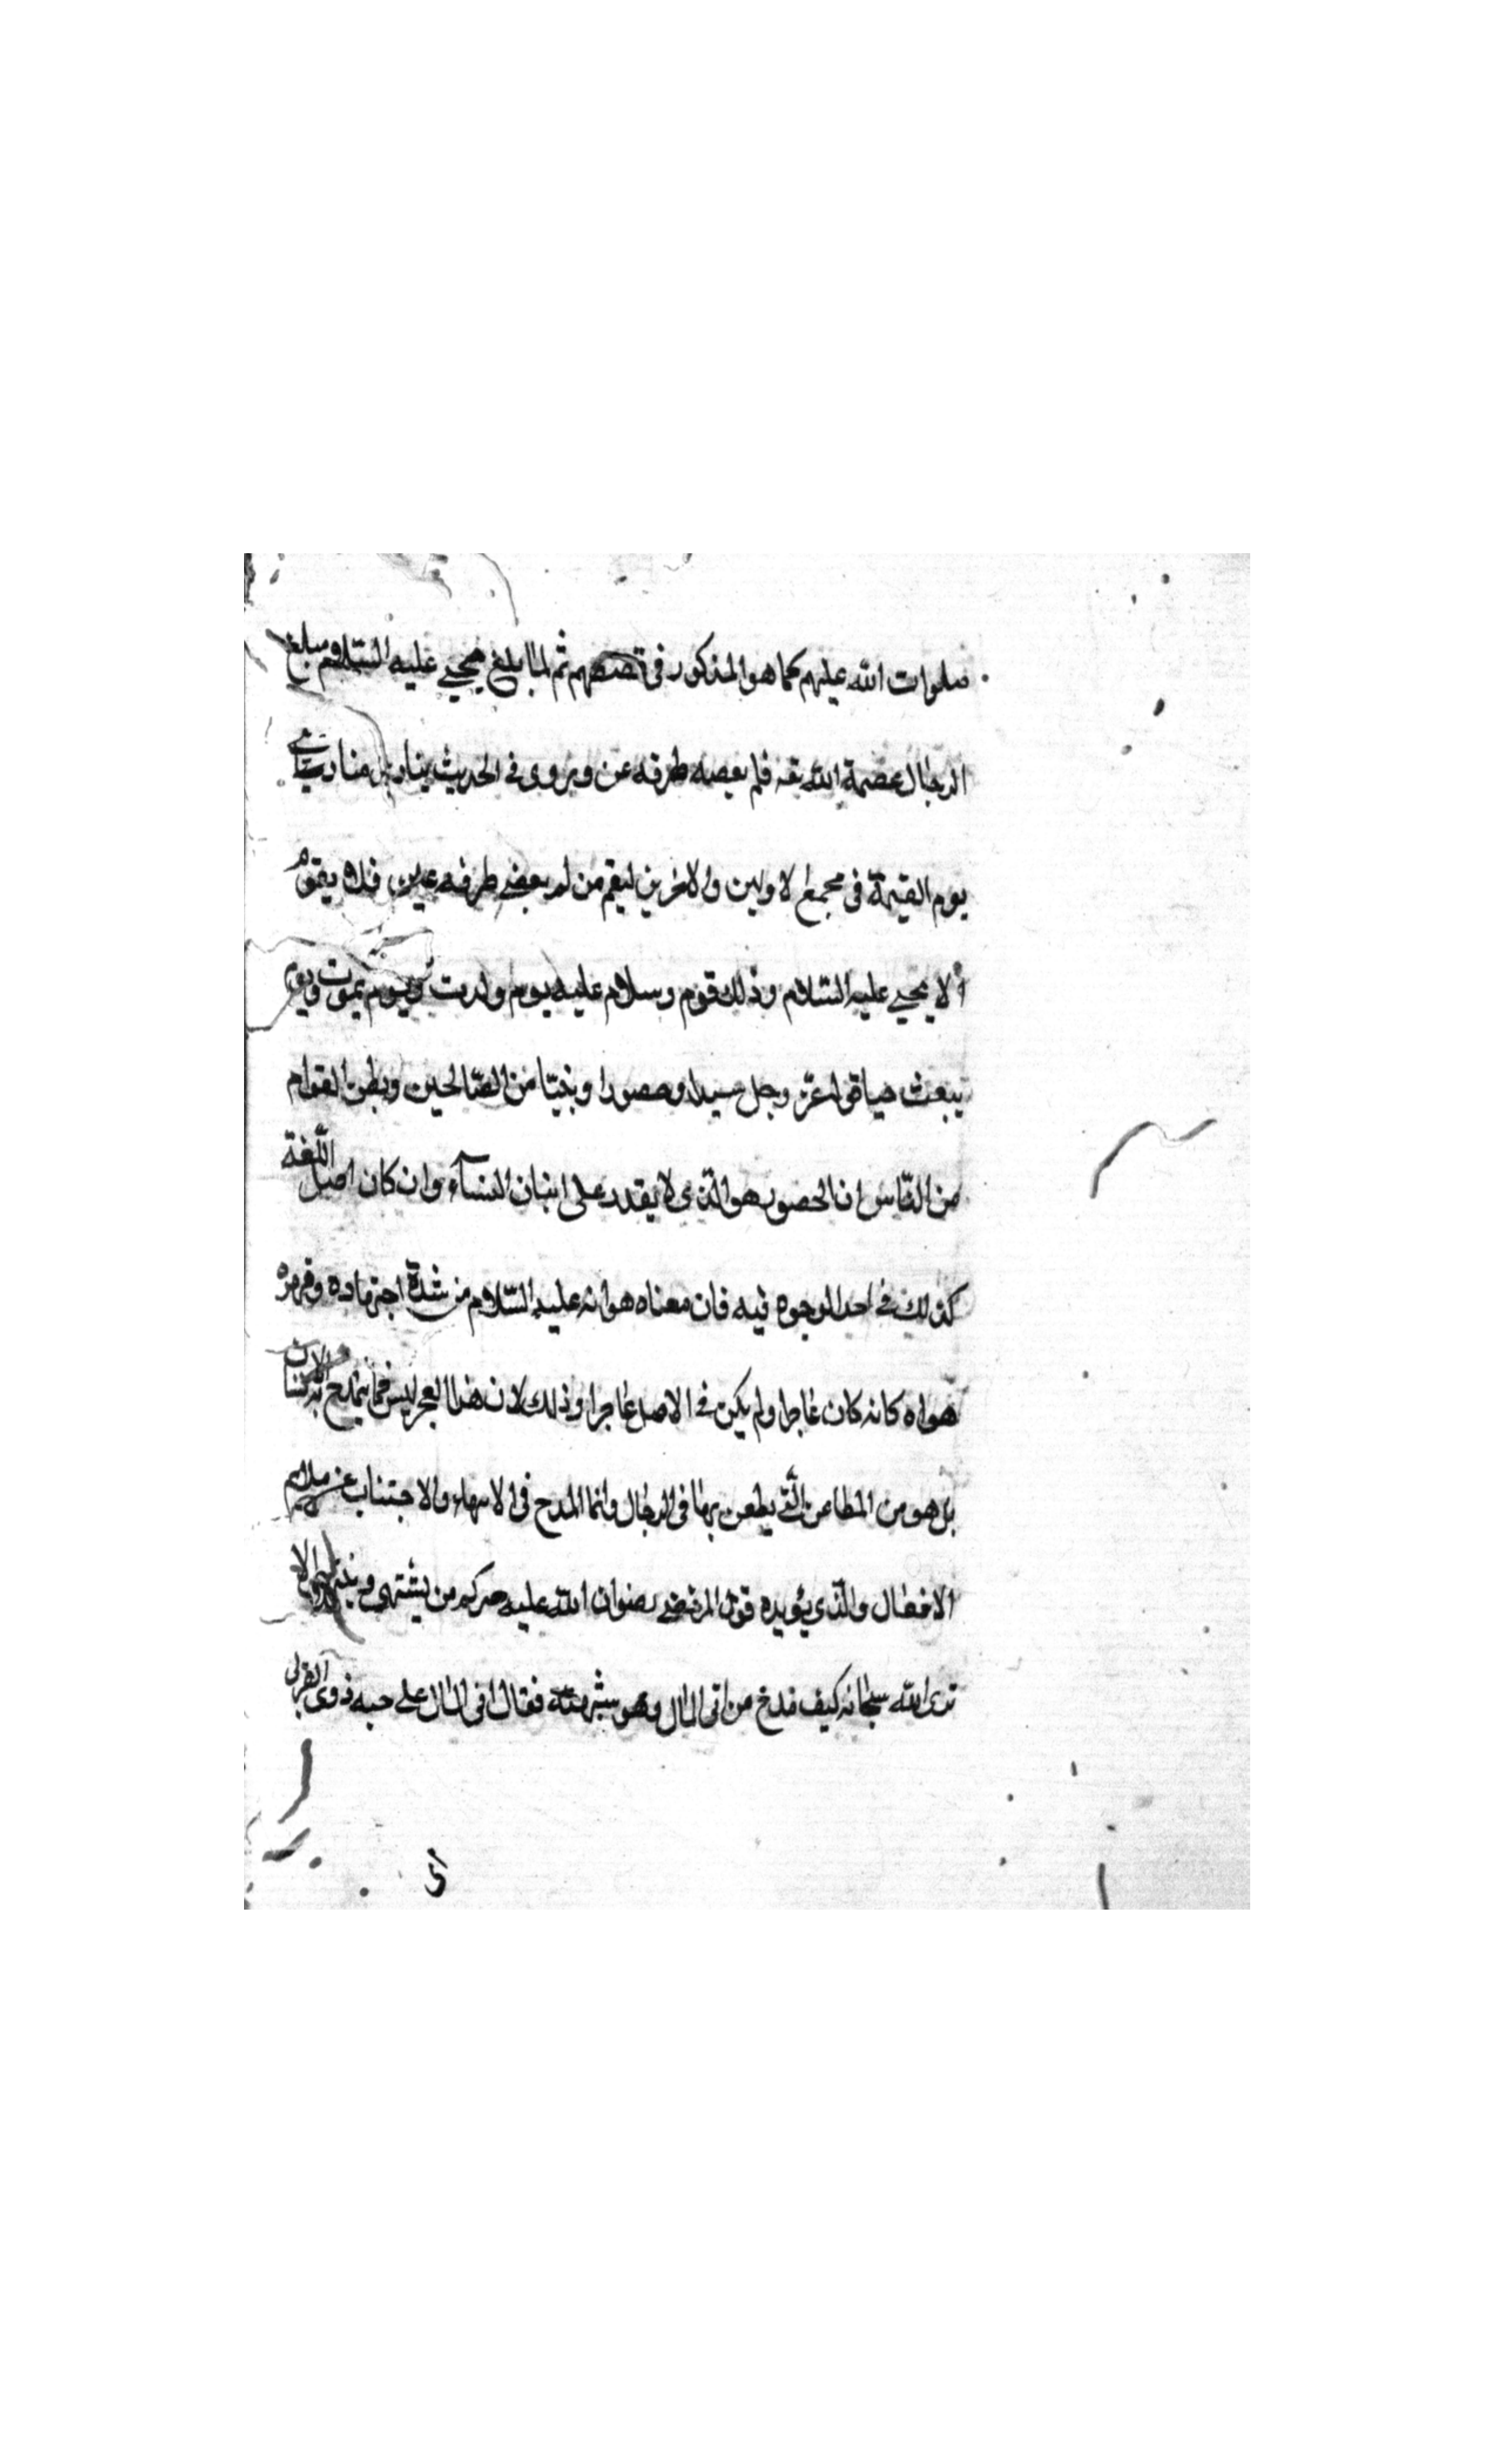 صلوات الله عليهم كما هو المذكور فى قصصهم ثم لما بلغ يحيى عليه السلام مبلغ
الرجال عصمة الله تعه فلم يعصه طرفه عن ويروى فى الحديث ينادى مناد
يوم القيمة فى مجمع لاولين والاخرين ليقم من لم يعص طرفه عين فلا يقوم
الا يحيى عليه السلام وذلك قوله وسلام عليه يوم ولدت ويوم يموت ويوم
يبعث حيا قوله عز وجل سيدا وحصورا ونبيا من الصالحين وبظن القوام
من الناس ان الحصور هو الذى لا يقدر على اتيان النساء وان كان اصل اللغة
كذلك فى احد الوجوه فيه فان معناه هو انه عليه السلام من شدة اجتهاده وقهره
هواه كانه كان عاجزا ولم يكن فى الاصل عاجزا وذلك لان هذا العجز ليس مما يتمدح به
بل هو من المطاعن التى يطعن بها فى الرجال وانما المدح فى الانتهاء والاجتناب عن
الافعال والذى يؤيده قول المرتضى رضوان الله عليه من يشتهى
ترى الله سبحانه كيف مدح من اتى المال وهو يشتهيه فقال اتى المال على حبه ذوى القربى